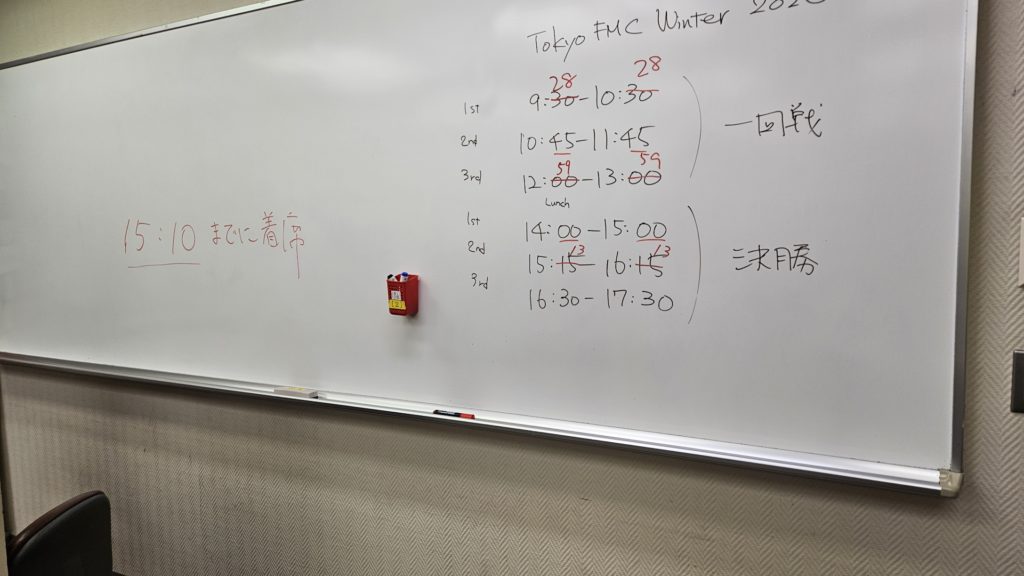 Tokyo FMC Winter
28 28
1st 9:30-10:30
2nd 10:45-11:45
59 59
3rd 12:00-13:00
一回戦
Lunch
1st 14:00-15:00
13 13
2nd 15:15-16:15
3rd 16:30-17:30
決勝
15:10 までに着席